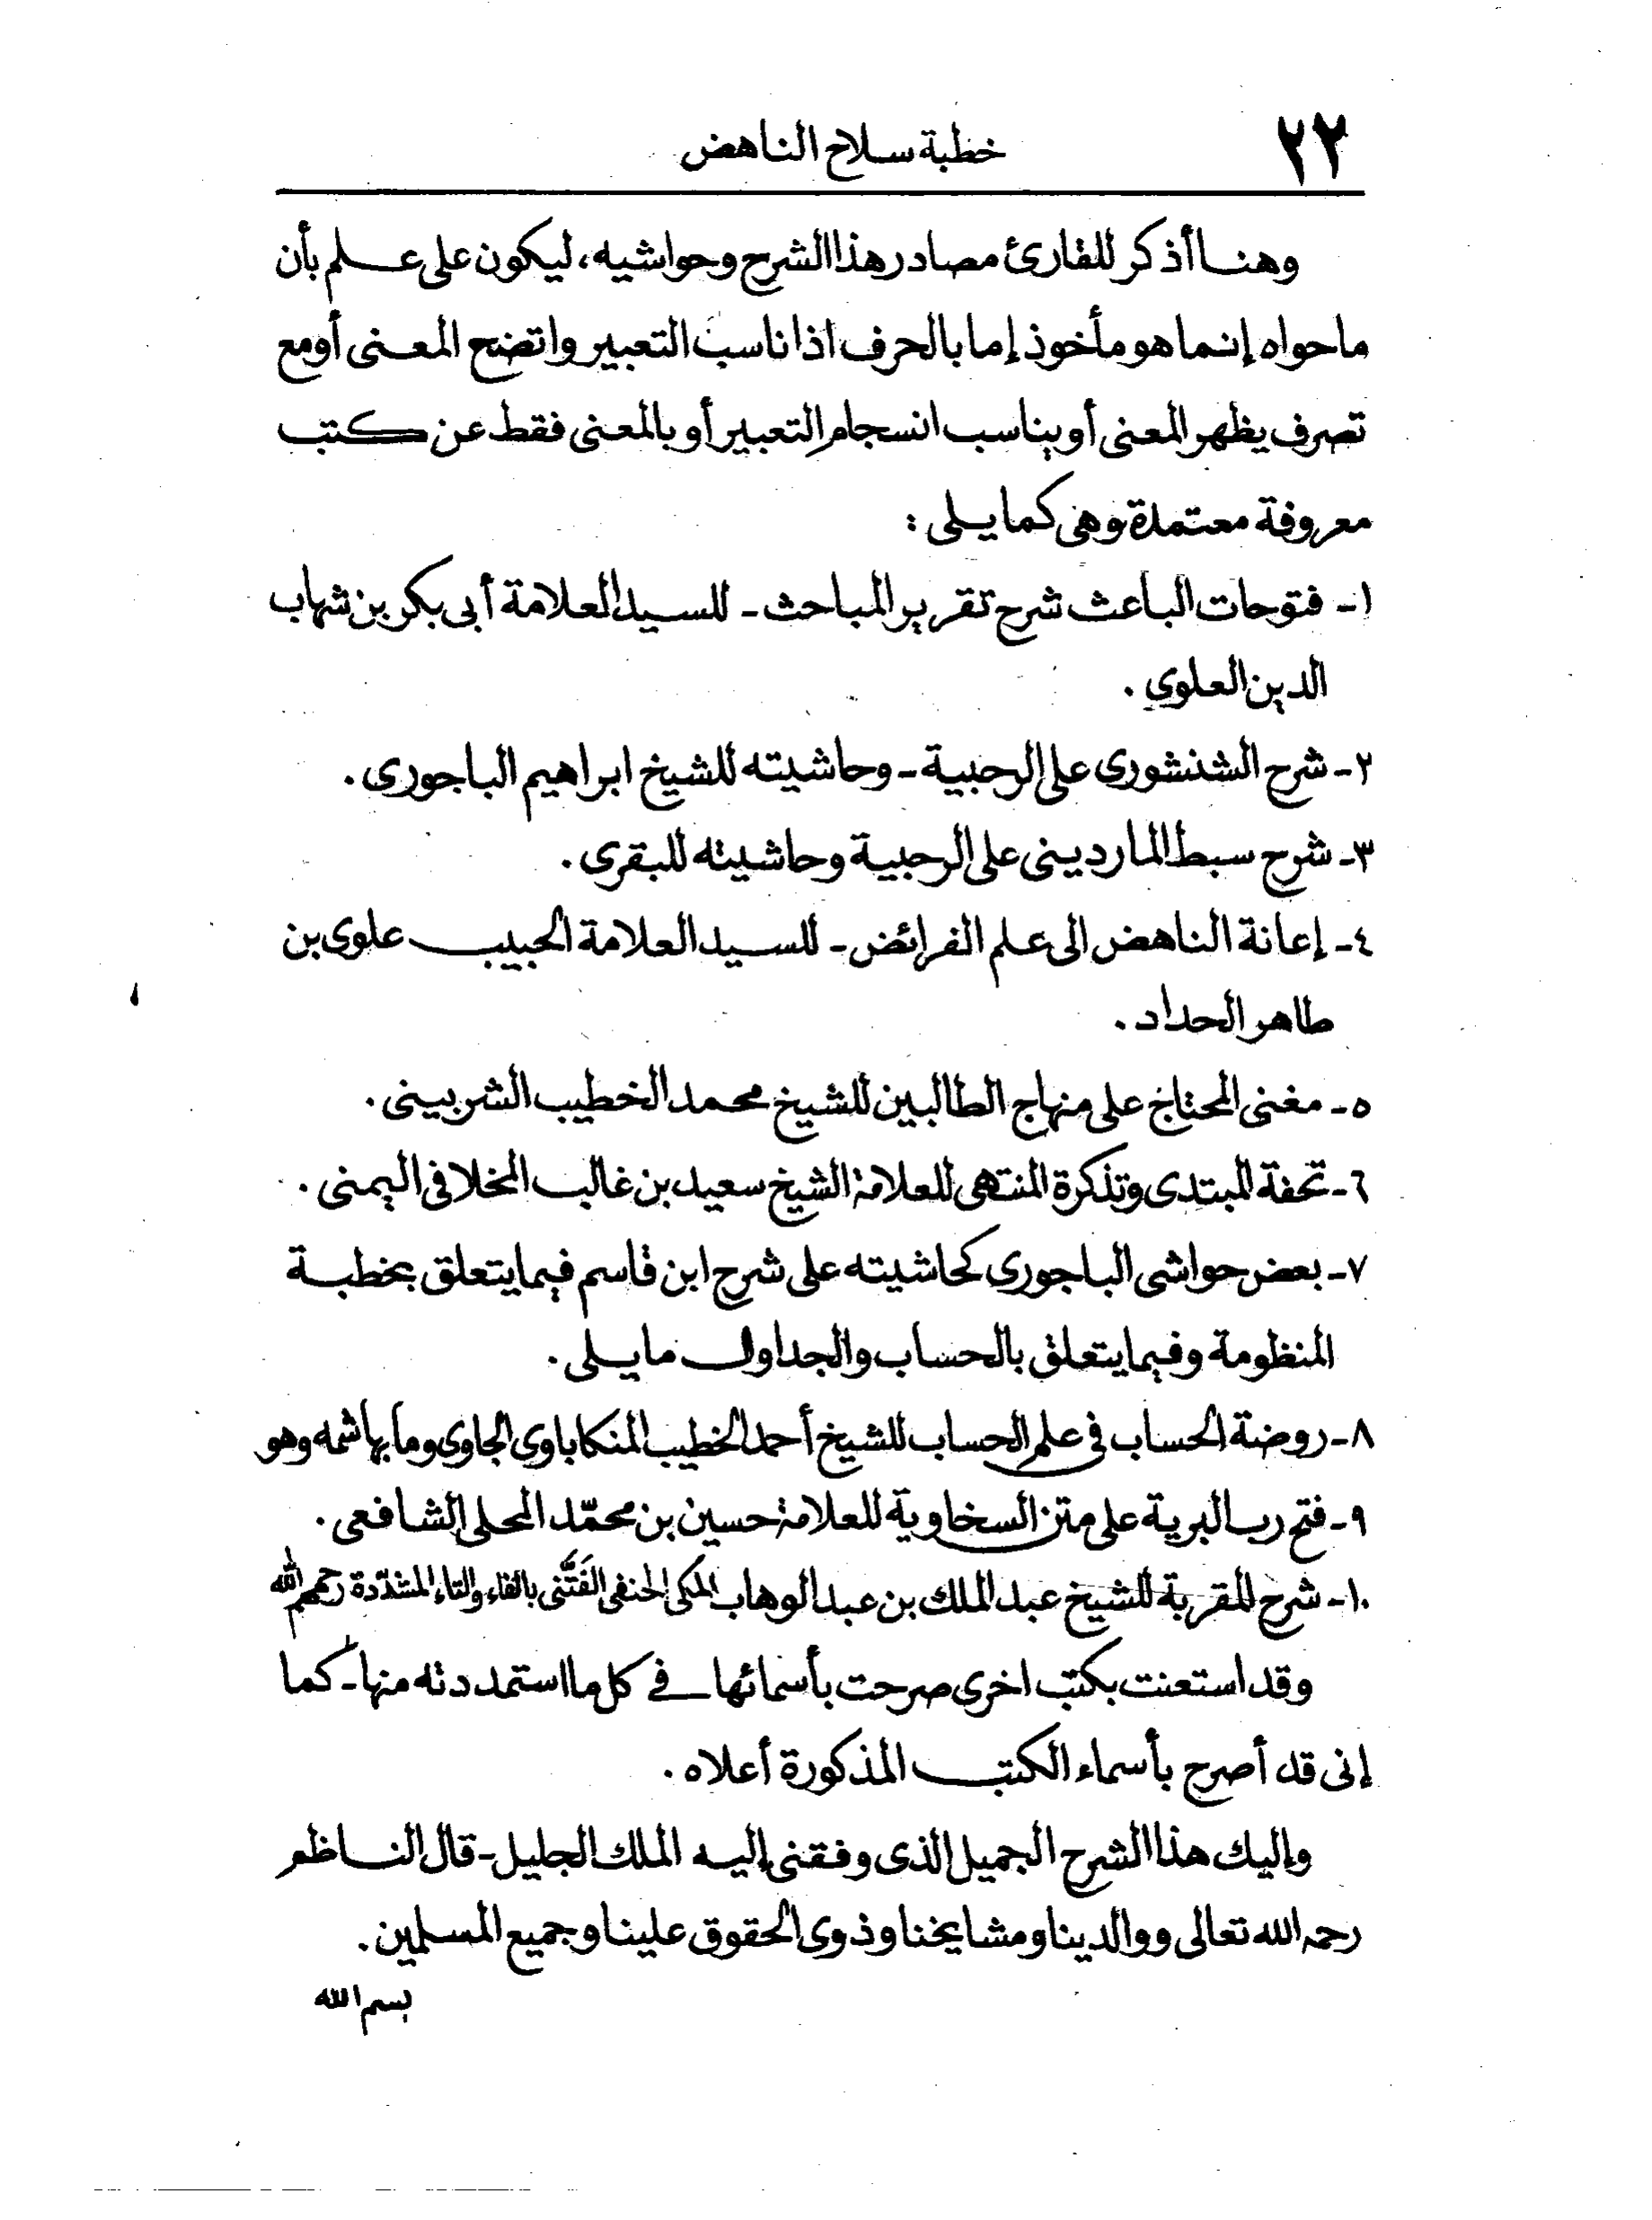 ٢٢
خطبة سلاح الناهض
وهنا أذكر للقارئ مصادر هذا الشرح وحواشيه، ليكون على علم بأن
ما حواه إنما هو مأخوذ إما بالحرف اذا ناسب التعبير واتضح المعنى أو مع
تصرف يظهر المعنى أو يناسب انسجام التعبير أو بالمعنى فقط عن كتب
معروفة معتمدة وهى كما يلى :
١- فتوحات الباعث شرح تقرير المباحث - للسيد العلامة أبى بكر بن شهاب
الدين العلوى .
٢- شرح الشنشورى على الرحبية - وحاشيته للشيخ ابراهيم الباجورى .
٣- شرح سبط الماردينى على الرحبية وحاشيته للبقرى .
٤- إعانة الناهض الى علم الفرائض - للسيد العلامة الحبيب علوى بن
طاهر الحداد .
٥- مغنى المحتاج على منهاج الطالبين للشيخ محمد الخطيب الشربينى .
٦- تحفة المبتدى وتذكرة المنتهى للعلامة الشيخ سعيد بن غالب المخلافى اليمنى .
٧- بعض حواشى الباجورى كحاشيته على شرح ابن قاسم فيما يتعلق بخطبة
المنظومة وفيما يتعلق بالحساب والجداول ما يلى .
٨- روضة الحساب فى علم الحساب للشيخ أحمد الخطيب المنكاباوى الجاوى وما بهاشمه وهو
٩- فتح رب البرية على متن السخاوية للعلامة حسين بن محمّد المحلى الشافعى .
١٠- شرح المقربة للشيخ عبد الملك بن عبد الوهاب المكى الحنفى الفَتَّنى بالفاء والتاء المشدّدة رحمهم الله
وقد استعنت بكتب اخرى صرحت بأسمائها فى كل ما استمددته منها - كما
إنى قد أصرح بأسماء الكتب المذكورة أعلاه .
وإليك هذا الشرح الجميل الذى وفقنى إليه الملك الجليل - قال الناظم
رحمه الله تعالى ووالدينا ومشايخنا وذوى الحقوق علينا وجميع المسلمين .
بسم الله